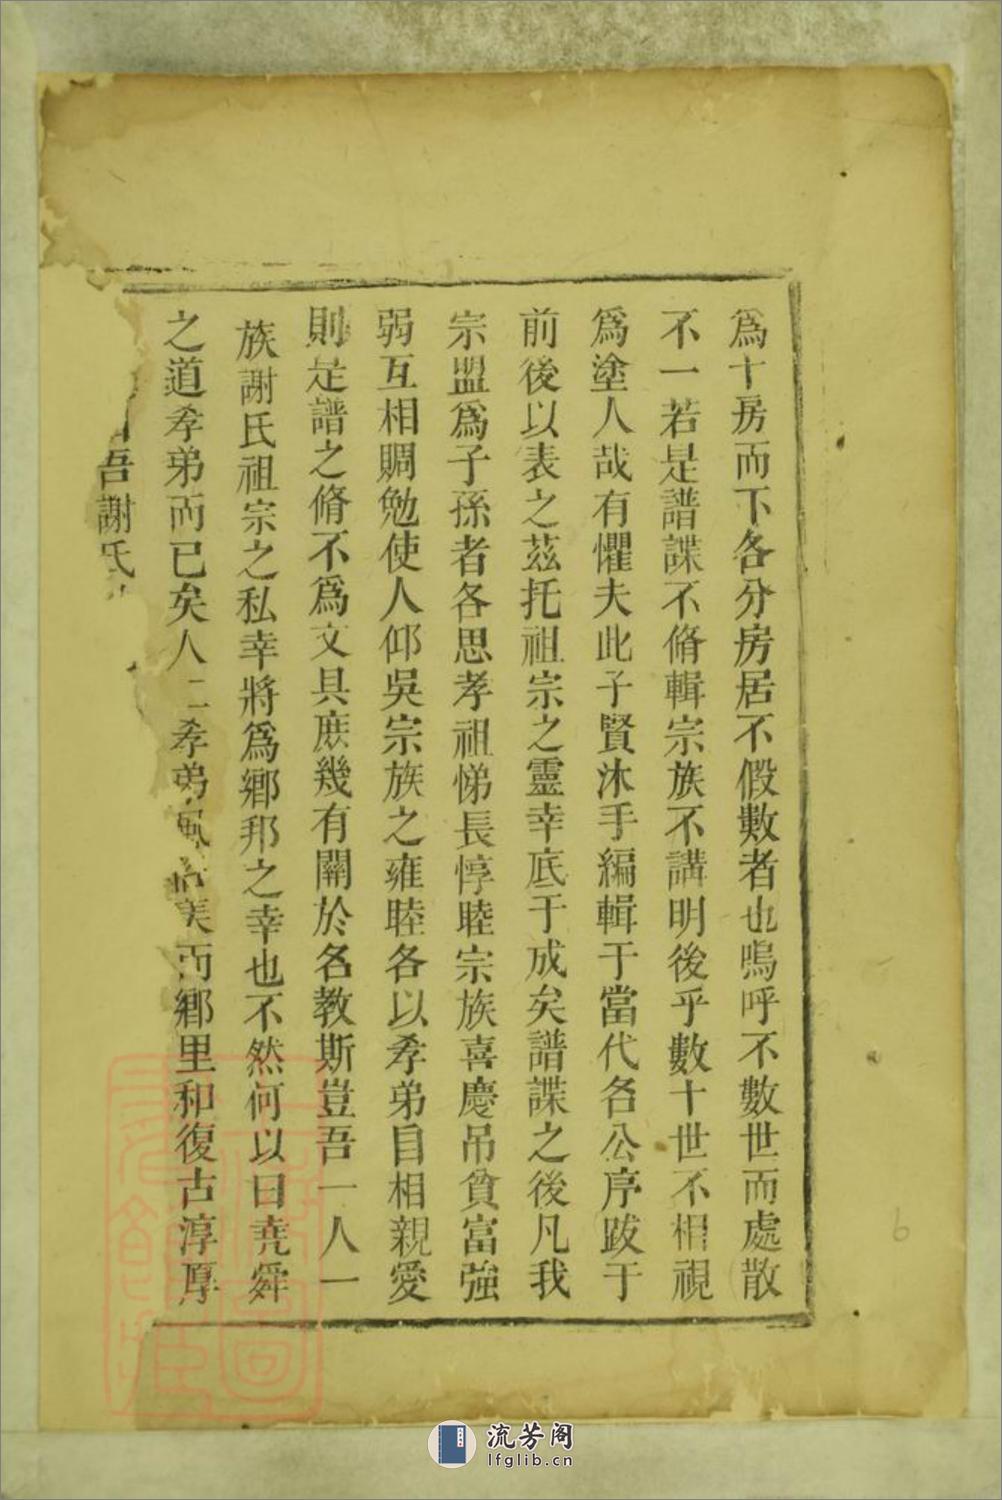 為十房而下各分房居不假數者也嗚呼不數世而處散
不一若是譜諜不脩輯宗族不講明後乎數十世不相視
為塗人哉有懼夫此子賢沐手編輯于當代各公序跋于
前後以表之茲托祖宗之靈幸底于成矣譜諜之後凡我
宗盟為子孫者各思孝祖悌長惇睦宗族喜慶吊貧富強
弱互相賙勉使人仰吳宗族之雍睦各以孝弟自相親愛
則是譜之脩不為文具庶幾有關於名教斯豈吾一人一
族謝氏祖宗之私幸將為鄉邦之幸也不然何以曰堯舜
之道孝弟而已矣人二孝弟風俗美而鄉里和復古淳厚
吾謝氏
6
流芳阁
lfglib.cn